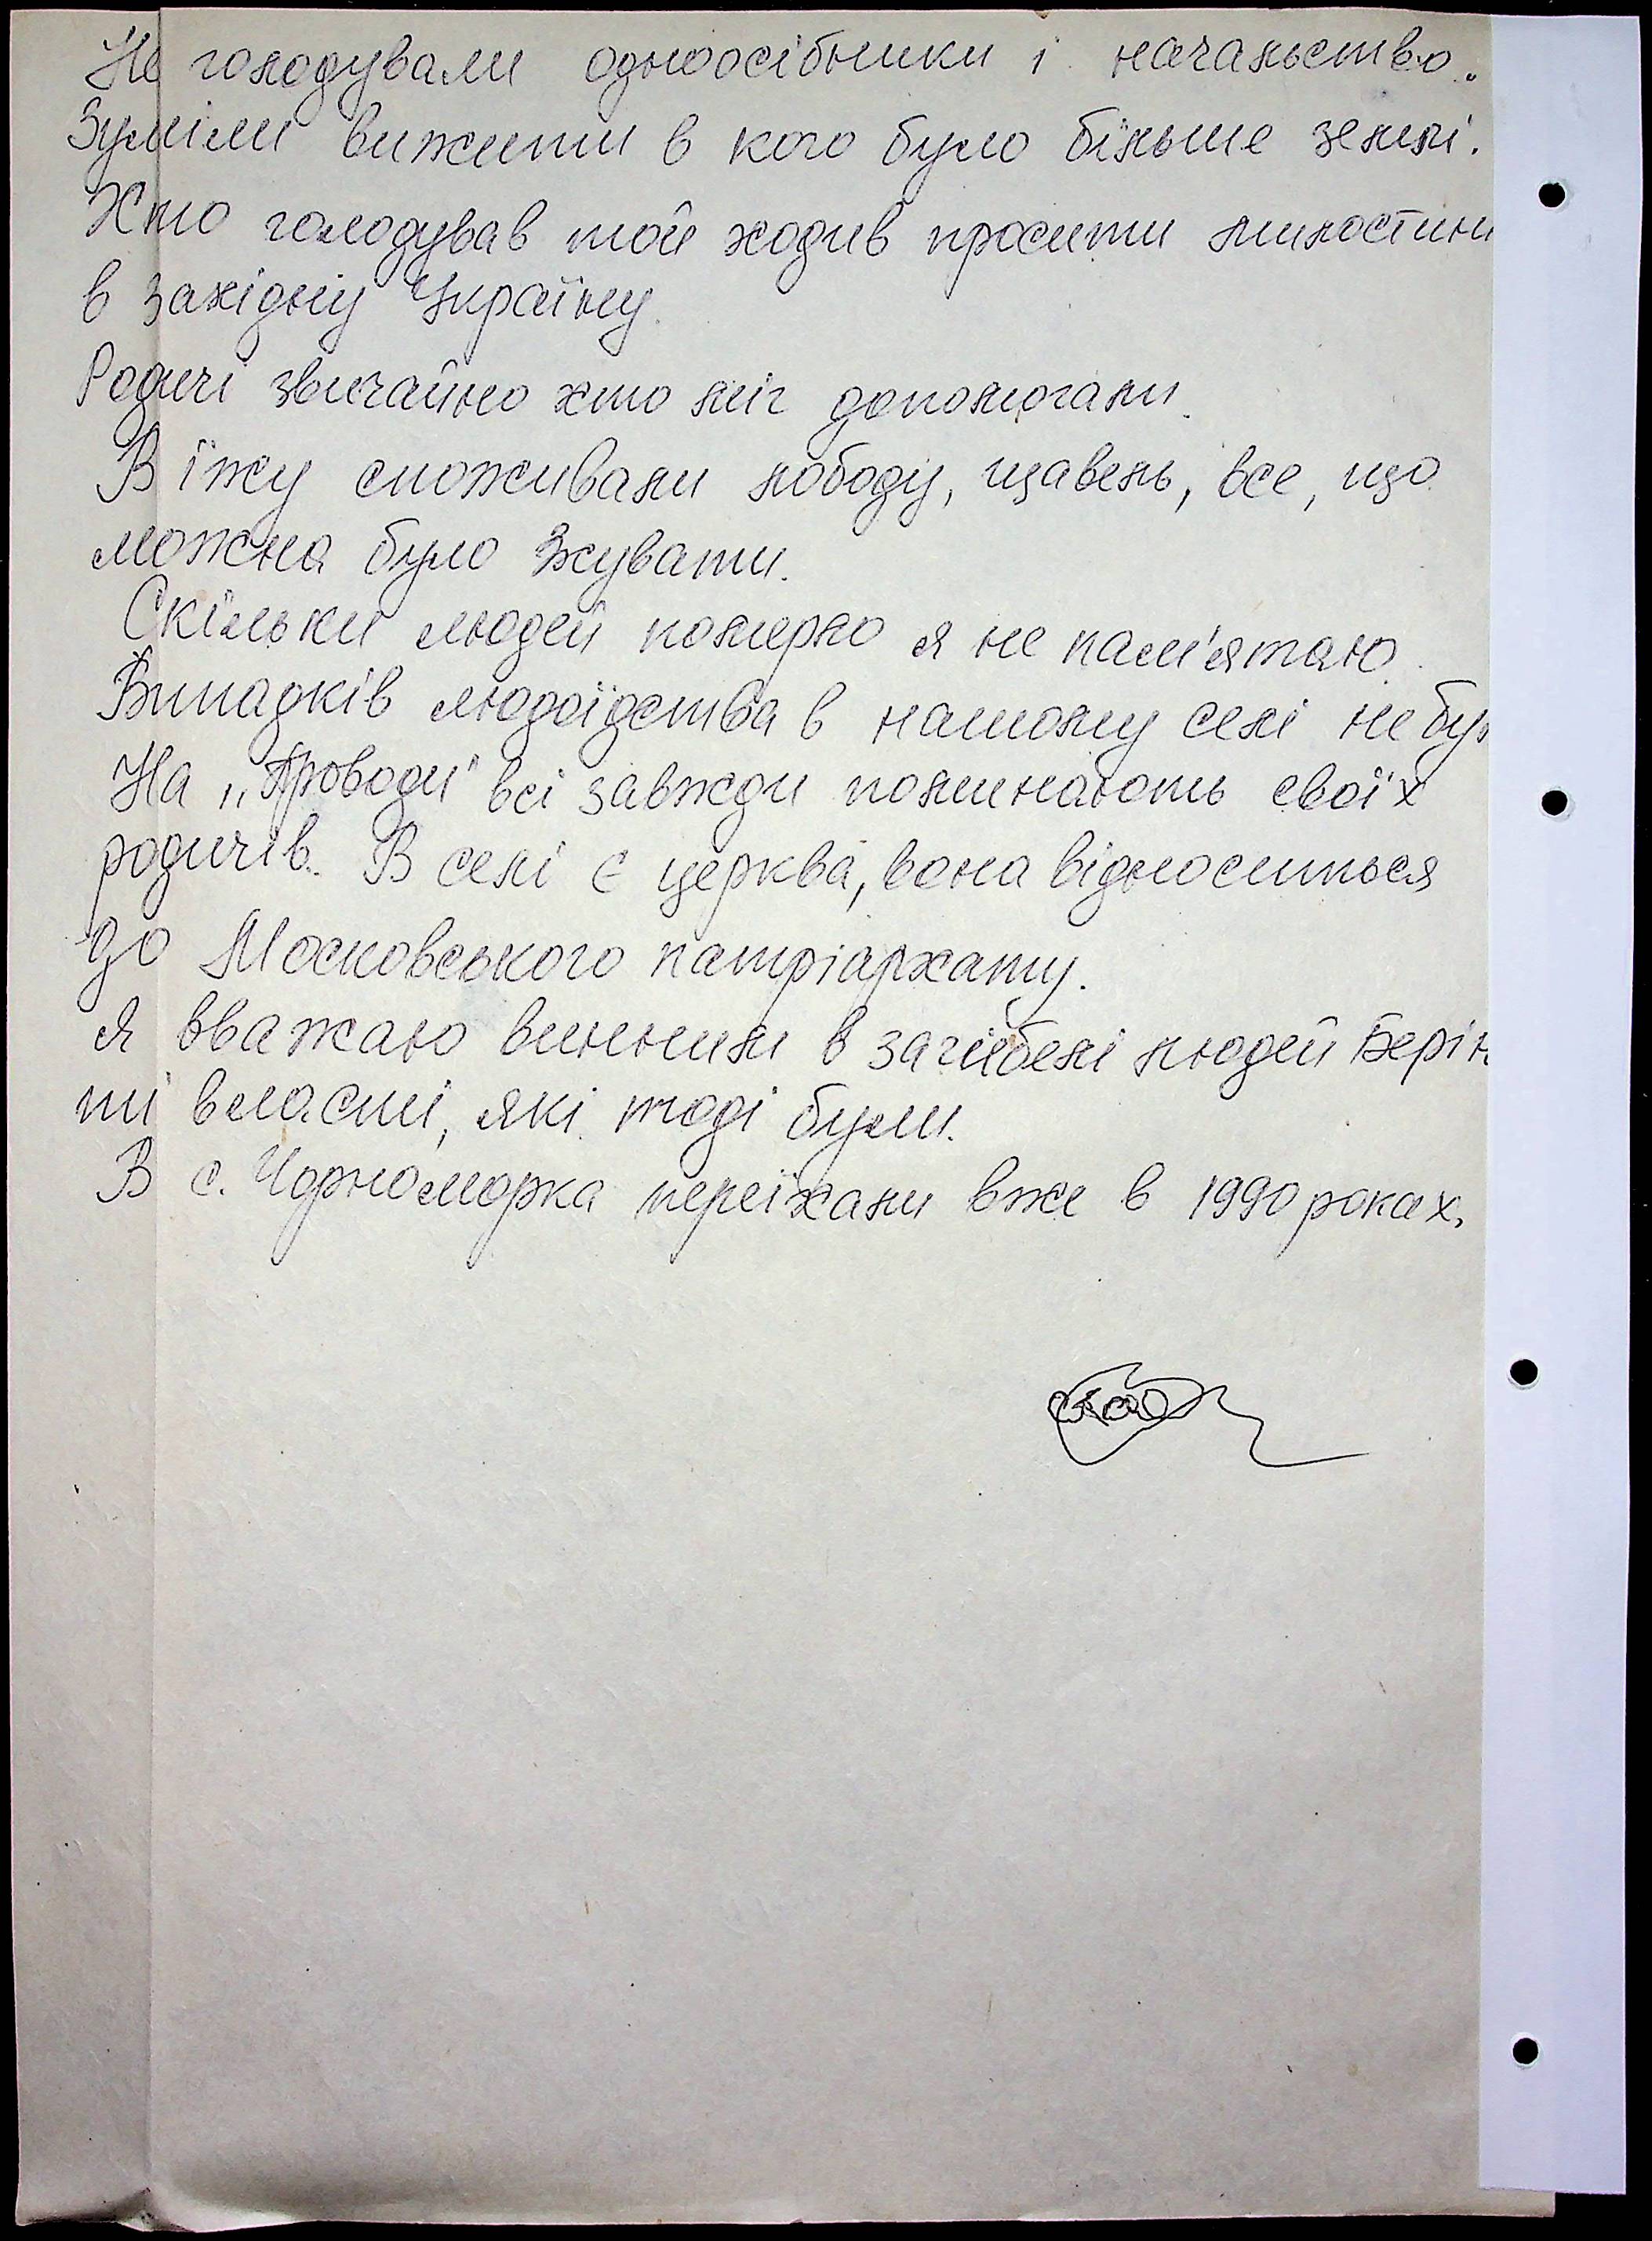 Не голодували одноосібники і начальство.
Зуміли вижити в кого було більше землі.
Хто голодував той ходив просити милостини
в Західну Україну.
Родичі звичайно хто міг допомогали.
В їжу споживали лободу, щавель, все, що
можна було зжувати.
Скільки людей померло я не пам'ятаю.
Випадків людоїдства в нашому селі не бу
На „Проводи" всі завжди поминають своїх
родичів. В селі є церква, вона відноситься
до Московського патріархату.
Я вважаю винними в загибелі людей
ті власті, які тоді були.
В с. Чорноморка переїхали вже в 1990 роках.